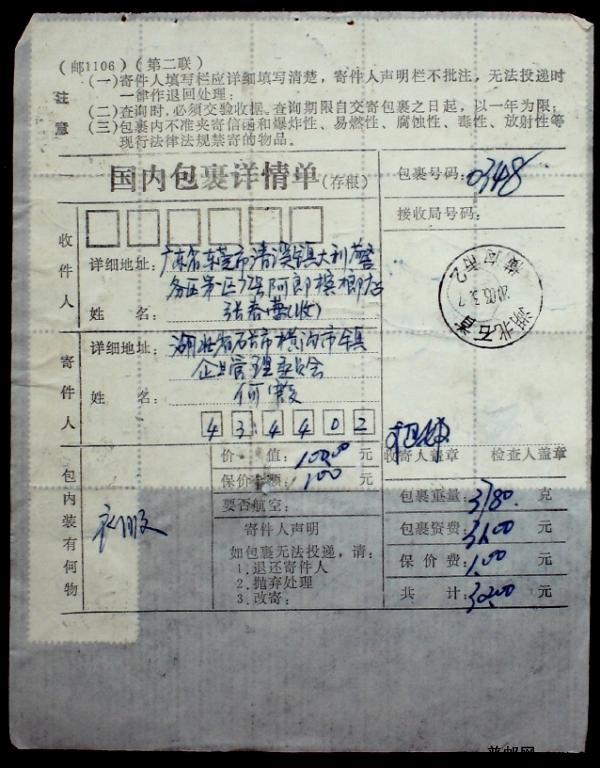 (邮1106)(第二联)
注意
(一)寄件人填写栏应详细填写清楚，寄件人声明栏不批注，无法投递时
一律作退回处理；
(二)查询时，必须交验收据。查询期限自交寄包裹之日起，以一年为限；
(三)包裹内不准夹寄信函和爆炸性、易燃性、腐蚀性、毒性、放射性等
现行法律法规禁寄的物品。
国内包裹详情单(存根)
包裹号码：0348
接收局号码：
收件人
详细地址：广东省东莞市清溪镇大利警
务区第一区
阿郎槟榔店
姓 名：张春
(收)
湖北石首
2003.3.7
寄件人
详细地址：湖北省石首市横沟市镇
企业管理委员会
姓 名：何霞
434402
包内装有何物
衣服
价 值：100.00 元
保价金额：100 元
要否航空：
寄件人声明
如包裹无法投递，请：
1.退还寄件人
2.抛弃处理
3.改寄：
收寄人盖章
检查人盖章
包裹重量：3780 克
包裹资费：元
保 价 费：1.00 元
共 计：元
普邮网